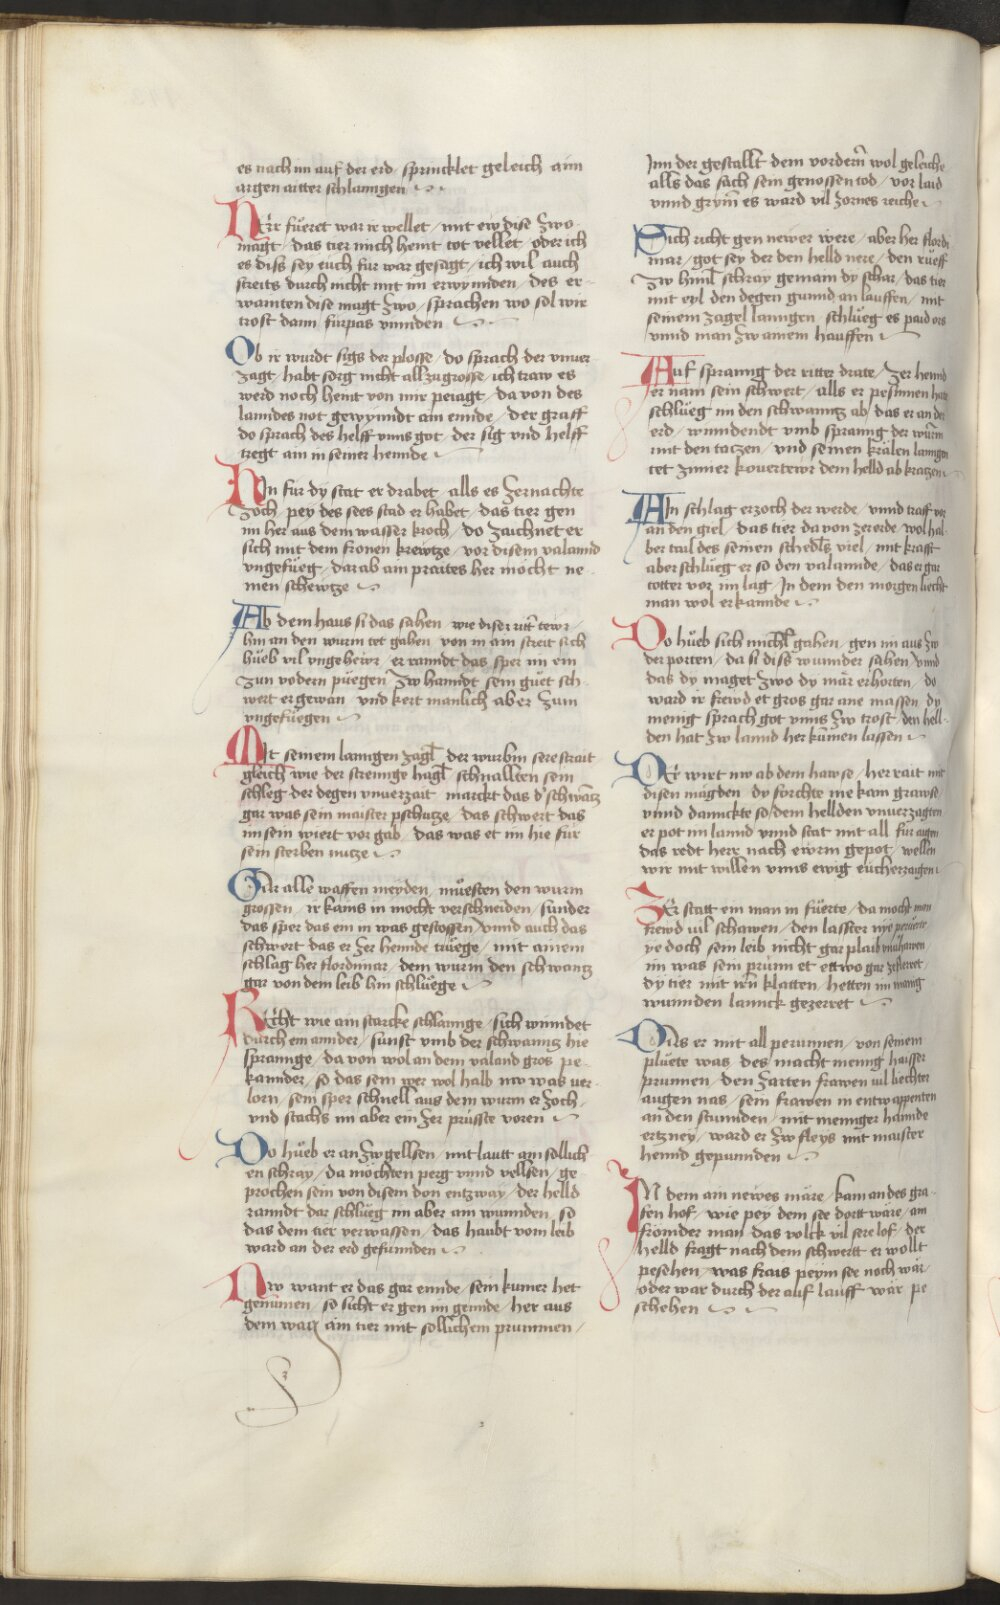 es nach im auf der erd / sprincklet geleich aim
argen aitter schlanngen
Nŭr fŭeret war ir wellet / mit ew dise zwo
magt / das tier mich heint tot vellet / oder ich
es dis sey euch fur war gesagt / ich wil auch
streits durch nicht mit im erwynnden / des er-
wainten dise magt zwo / sprachen wo sol wir
trost dann fürpas vinnden
Ob ir wurdt sigs der plosse / do sprach der vnuer-
zagt / habt sorg nicht all zu grosse / ich traw es
werd noch heint von mir peiagt / da von des
lanndes not gewynndt ain ennde / der graff
do sprach des helff vnns got / der sig vnd helff
tregt ain in seiner hennde
Hin für dy stat er drabet / alls es zernachte
zoch / pey des sees stad er habet / das tier gen
im her aus dem wasser kroch / do zaichnet er
sich mit dem fronen krewtze / vor disem valannd
vngefŭeg / darab ain praites her mocht ne-
men schewtze
Ab dem haus si das sahen / wie diser ritter tewr /
hin an den wurm tet gahen / von in ain streit sich
hŭeb vil vngehewr / er ranndt das sper im ein
zun vodern pŭegen / zw hanndt sein gŭet sch-
wert er gewan / vnd kert manlich aber zum
vngefŭegen
Mit seinem lanngen zagl / der wurbin sere strait
gleich wie der strennge hagl / schnallten sein
schleg der degen vnuerzait / marckt das d' schwantz
gar was sein maister pschutze / das schwert das
im sein wiert vor gab / das was et im hie für
sein sterben nutze
Gar alle waffen meyden / mŭesten den wurm
grossen / ir kains in mocht verschneiden / sunder
das sper das em in was gestossen / vnnd auch das
schwert das er zer hennde trŭege / mit ainem
schlag her flordimar / dem wurm den schwantz
gar von dem leib hin schlŭege
Recht wie ain starcke schlannge / sich winndet
durch ein annder / sunst vmb der schwanntz hie
sprannge / da von wol an dem valand gros pe-
kannder / so das sein wer wol halb nw was ver-
lorn / sein sper schnell aus dem wurm er zoch /
vnd stachs im aber ein zer prüsste voren
Do hŭeb er an zw gellsen / mit lautt ain sollich-
en schray / da möchten perg vnnd vellsen / ge-
prochen sein von disem don entzway / der helld
ranndt dar schlŭeg im aber ain wunnden / so
das dem tier verwassen / das haubt vom leib
ward an der erd gefunnden
Nw want er das gar ennde / sein kumer het
genŭmen / so sicht er gen im gennde / her aus
dem wag ain tier mit sollichem prummen /
Inn der gestallt dem vordern wol geleiche
alls das sach sein genossen tod / vor laid
vnnd grymm es ward vil zornes reiche
Sich richt gen newer were / aber her flordi-
mar / got sey der den helld nere / den rŭeff
zw himl schray gemain dy schar / das tier
mit eyl den degen gunnd an lauffen / mit
seinem zagel lanngen / schlŭeg es paid ors
vnnd man zw ainem hauffen
Auf sprannng der ritter drate / zer hennd
er nam sein schwert / alls er pesinnen hate
schlŭeg im den schwanntz ab / das er an der
erd / wunndendt vmb sprannng der wurm
mit den tatzen / vnd seinen kralen lanngen
tet zuner kouertewr dem helld ab kratzen
Ain schlag erzoch der werde / vnnd traff vor
an den giel / das tier da von zer erde / wol hal-
ber tail des seinen schedls viel / mit krafft
aber schlŭeg er so den valannde / das er gar
totter vor im lag / In dem den morgen liecht
man wol erkannde
Do hŭeb sich michel gahen / gen im aus zw
der porten / da si diss wunnder sahen / vnnd
das dy maget zwo dy mär erhorten / do
ward ir frewd et gros gar ane massen / dy
menig sprach got vnns zw trost / den hell-
den hat zw lannd her kumen lassen
Der wirt nw ab dem hawse / her rait mit
disen mägden / dy forchte nie kam grawse /
vnnd danickte so / dem hellden vnuerzagten
er pot im lannd vnnd stat mit all für aigen
das redt herr nach ewrm gepot / wellen
wir mit willen vnns ewig eucherzaigen
Zer statt ein man in fŭerte / da mocht man
frewd vil schawen / den lasster nye perŭerte
ye doch sein leib nicht gar plaib
im was sein prünn et ettwo gar zefleret /
dy tier mit irn klatten / hetten im manig
wunnden lannck gezerret
Das er mit all perunnen / von seinem
plŭete was / des macht menig haisser
prunnen / den zarten frawen vil liechter
augen nas / sein frawen in entwappenten
an den stunnden / mit meniger hannde
ertzney / ward er zw fleys mit maister
hennd gepunnden
In dem ain newes märe / kam an des gra-
fen hof / wie pey dem see dortt wäre / ain
fromder man / das volck vil sere lof / der
helld fragt nach dem schwertt er wollt
pesehen / was frais peym see noch wär
oder war durch der auf lauff wär pe-
schehen